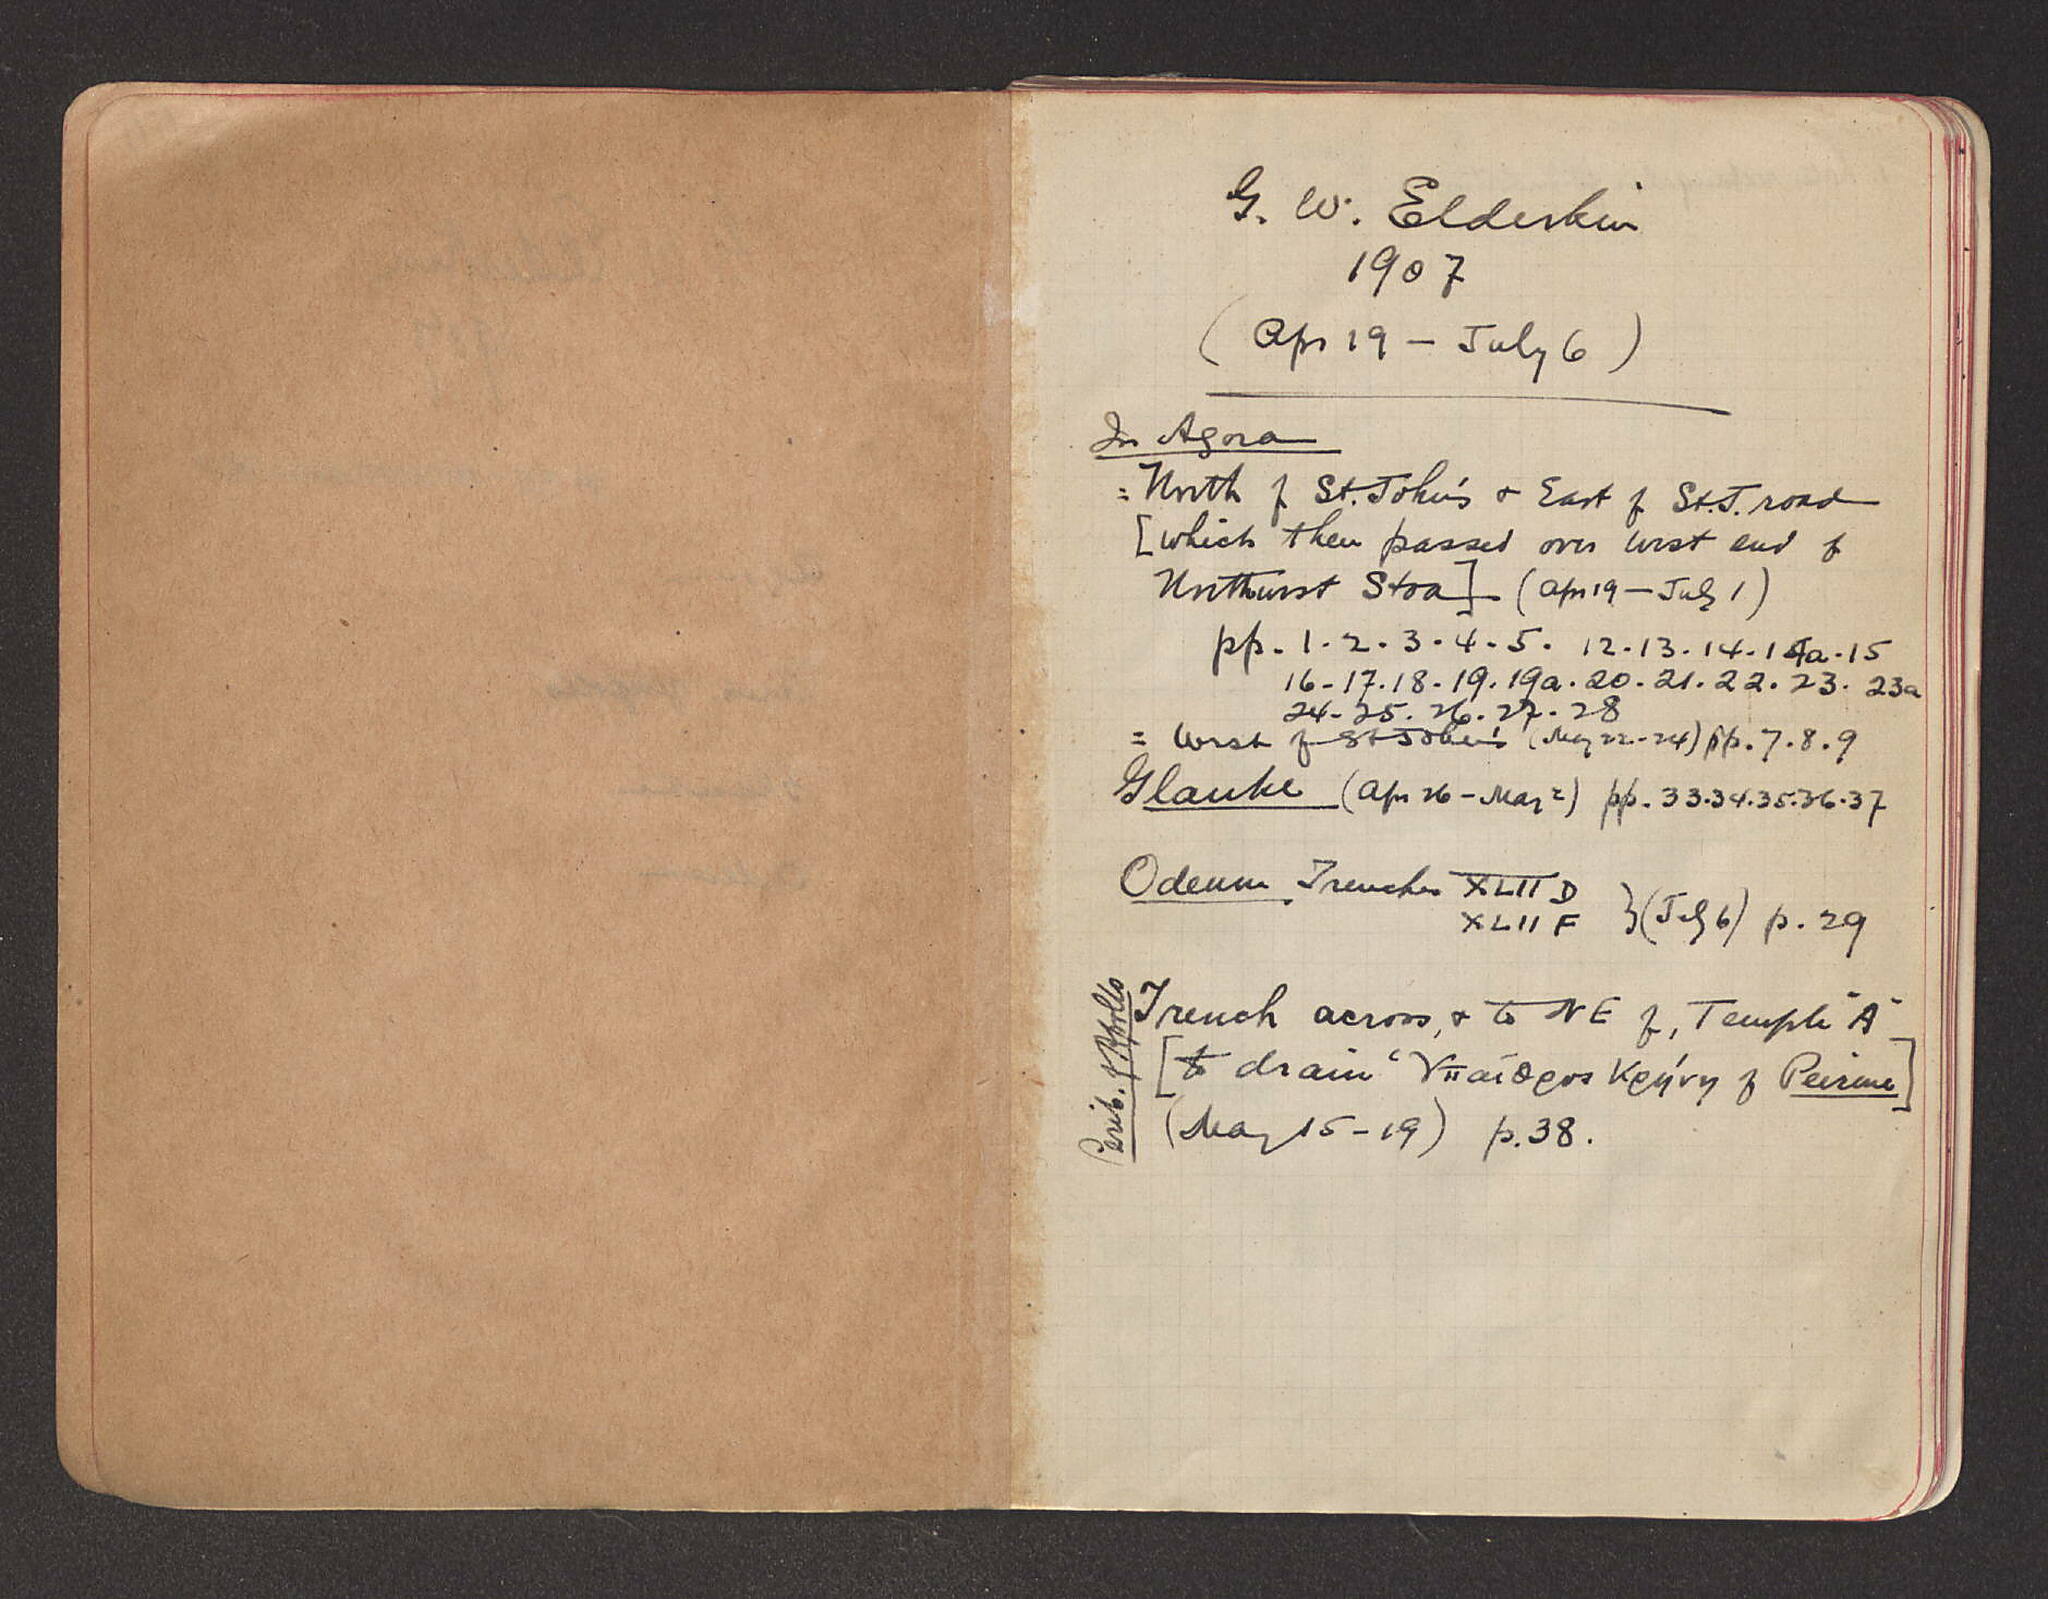 G. W. Elderkin
1907
(Apr 19 – July 6)
In Agora
= North of St. John's & East of St. J. road
[which then passed over west end of
Northwest Stoa] (Apr 19 – July 1)
pp. 1 · 2 · 3 · 4 · 5 · 12 · 13 · 14 · 14a · 15
16 – 17 · 18 · 19 · 19a · 20 · 21 · 22 · 23 · 23a
24 · 25 · 26 · 27 · 28
= West of St John's (May 22–24) pp. 7 · 8 · 9
Glauke (Apr 26 – May 2) pp. 33·34·35·36·37
Odeum Trenches XLII D
XLII F } (July 6) p. 29
Perib. of Apollo
Trench across, & to NE of, Temple "A"
[to drain "Ὑπαίθρος Κρήνη of Peirene]
(May 15 – 19) p. 38.